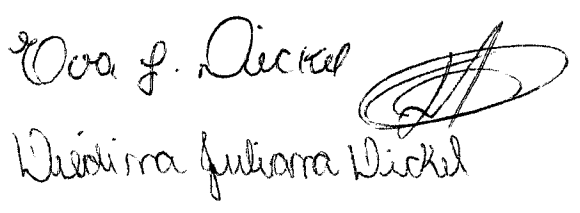 Eva J. Dickel
Diédima Juliana Dickel